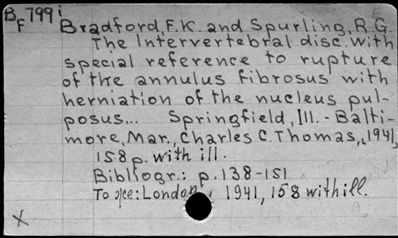 BF 799i Bradford, F.K. and Spurling, R.G.
The Intervertebral disc. With
special reference to rupture
of the annulus fibrosus with
herniation of the nucleus pul-
posus... Springfield, Ill. - Balti-
more, Mar., Charles C. Thomas, 1941,
158 p. with ill.
Bibliogr.: p. 138-151
To же: London, 1941, 158 with ill.
X